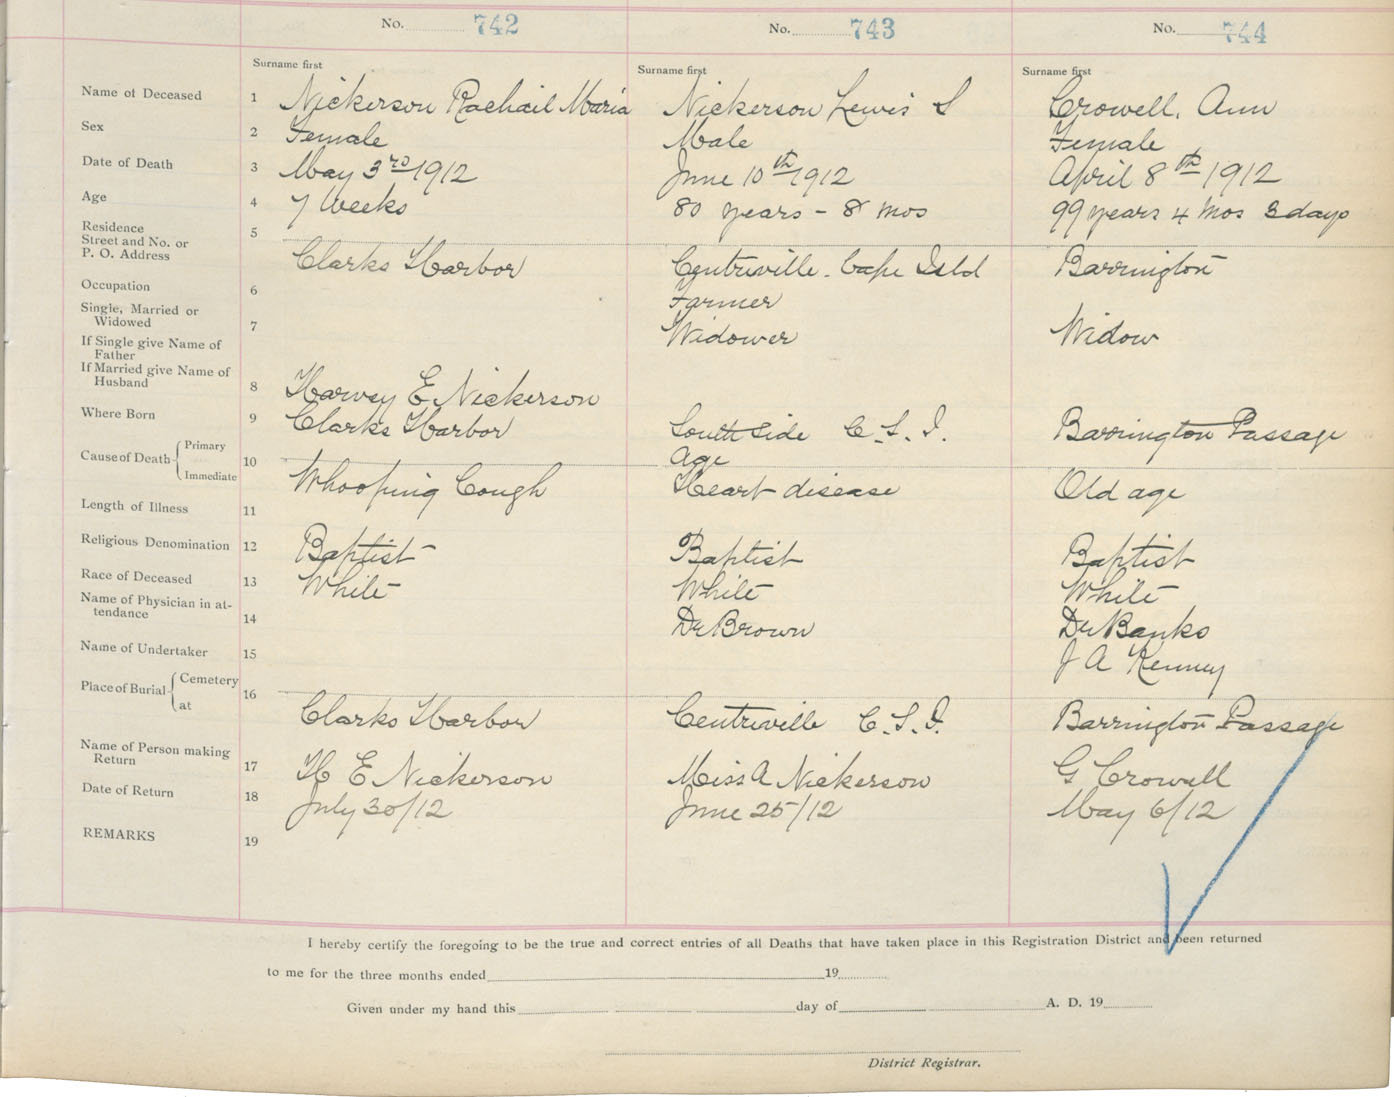 No. 742 No. 743 No. 744
Surname first Surname first Surname first
Name of Deceased 1 Nickerson Rachail Maria Nickerson Lewis S Crowell, Ann
Sex 2 Female Male Female
Date of Death 3 May 3rd 1912 June 10th 1912 April 8th 1912
Age 4 7 Weeks 80 years - 8 mos 99 years 4 mos 3 days
Residence 5
Street and No. or
P. O. Address Clarks Harbor Centreville. Cape Isld Barrington
Occupation 6 Farmer
Single, Married or
Widowed 7 Widower Widow
If Single give Name of
Father
If Married give Name of
Husband 8 Harvey E Nickerson
Where Born 9 Clarks Harbor South Side C. S. I. Barrington Passage
Cause of Death Primary 10 Age
Immediate Whooping Cough Heart disease Old age
Length of Illness 11
Religious Denomination 12 Baptist Baptist Baptist
Race of Deceased 13 White White White
Name of Physician in at-
tendance 14 Dr Brown Dr Banks
Name of Undertaker 15 J A Kenney
Place of Burial Cemetery 16
at Clarks Harbor Centreville C. S. I. Barrington Passage
Name of Person making
Return 17 H E Nickerson Miss A Nickerson G Crowell
Date of Return 18 July 30/12 June 25/12 May 6/12
REMARKS 19
I hereby certify the foregoing to be the true and correct entries of all Deaths that have taken place in this Registration District and been returned
to me for the three months ended 19
Given under my hand this day of A. D. 19
District Registrar.